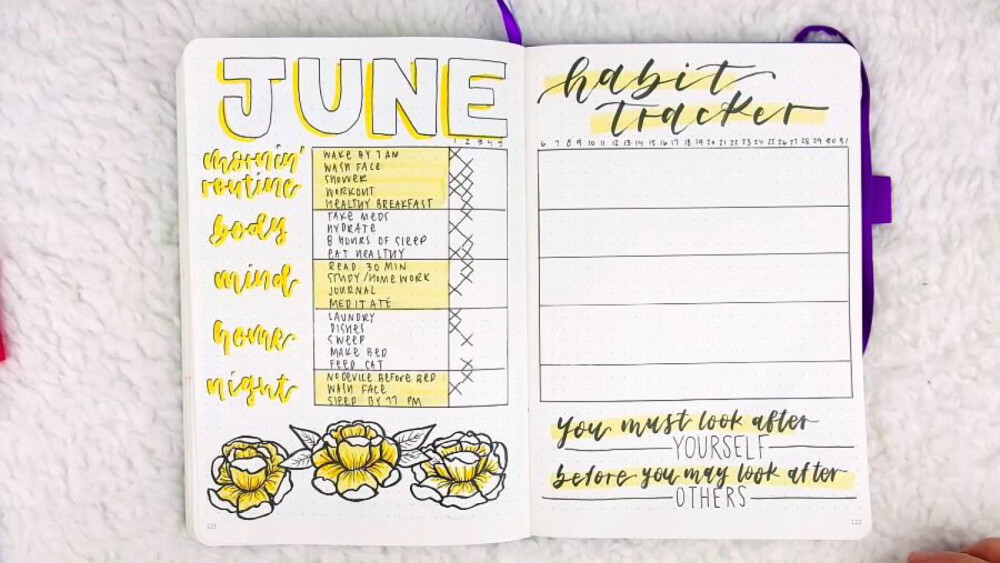 JUNE
1 2 3 4 5
mornin'
routine
WAKE BY 7 AM
WASH FACE
SHOWER
WORKOUT
HEALTHY BREAKFAST
body
TAKE MEDS
HYDRATE
8 HOURS OF SLEEP
EAT HEALTHY
mind
READ 30 MIN
STUDY/HOMEWORK
JOURNAL
MEDITATE
home
LAUNDRY
DISHES
SWEEP
MAKE BED
FEED CAT
night
NO DEVICE BEFORE BED
WASH FACE
SLEEP BY 11 PM
121
habit
tracker
6 7 8 9 10 11 12 13 14 15 16 17 18 19 20 21 22 23 24 25 26 27 28 29 30 31
you must look after
YOURSELF
before you may look after
OTHERS
122